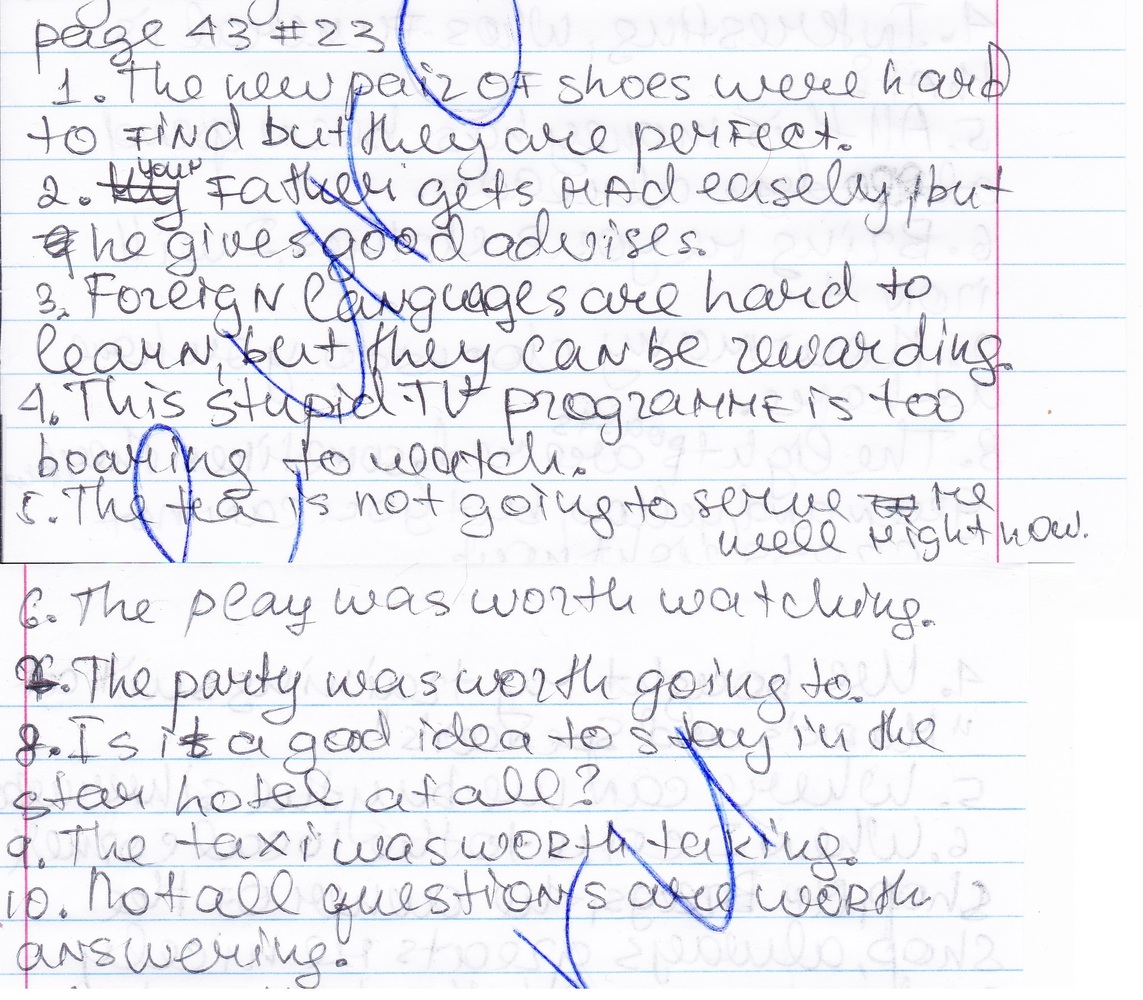 page 43 #23
1. The new pair of shoes were hard
to find but they are perfect.
2. your Father gets mad easely, but
he gives good advises.
3. Foreign languages are hard to
learn, but they can be rewarding.
4. This stupid TV programme is too
boaring to watch.
5. The tea is not going to serve me
well right now.
6. The play was worth watching.
7. The party was worth going to.
8. Is it a good idea to stay in the
star hotel at all?
9. The taxi was worth taking.
10. Not all questions are worth
answering.